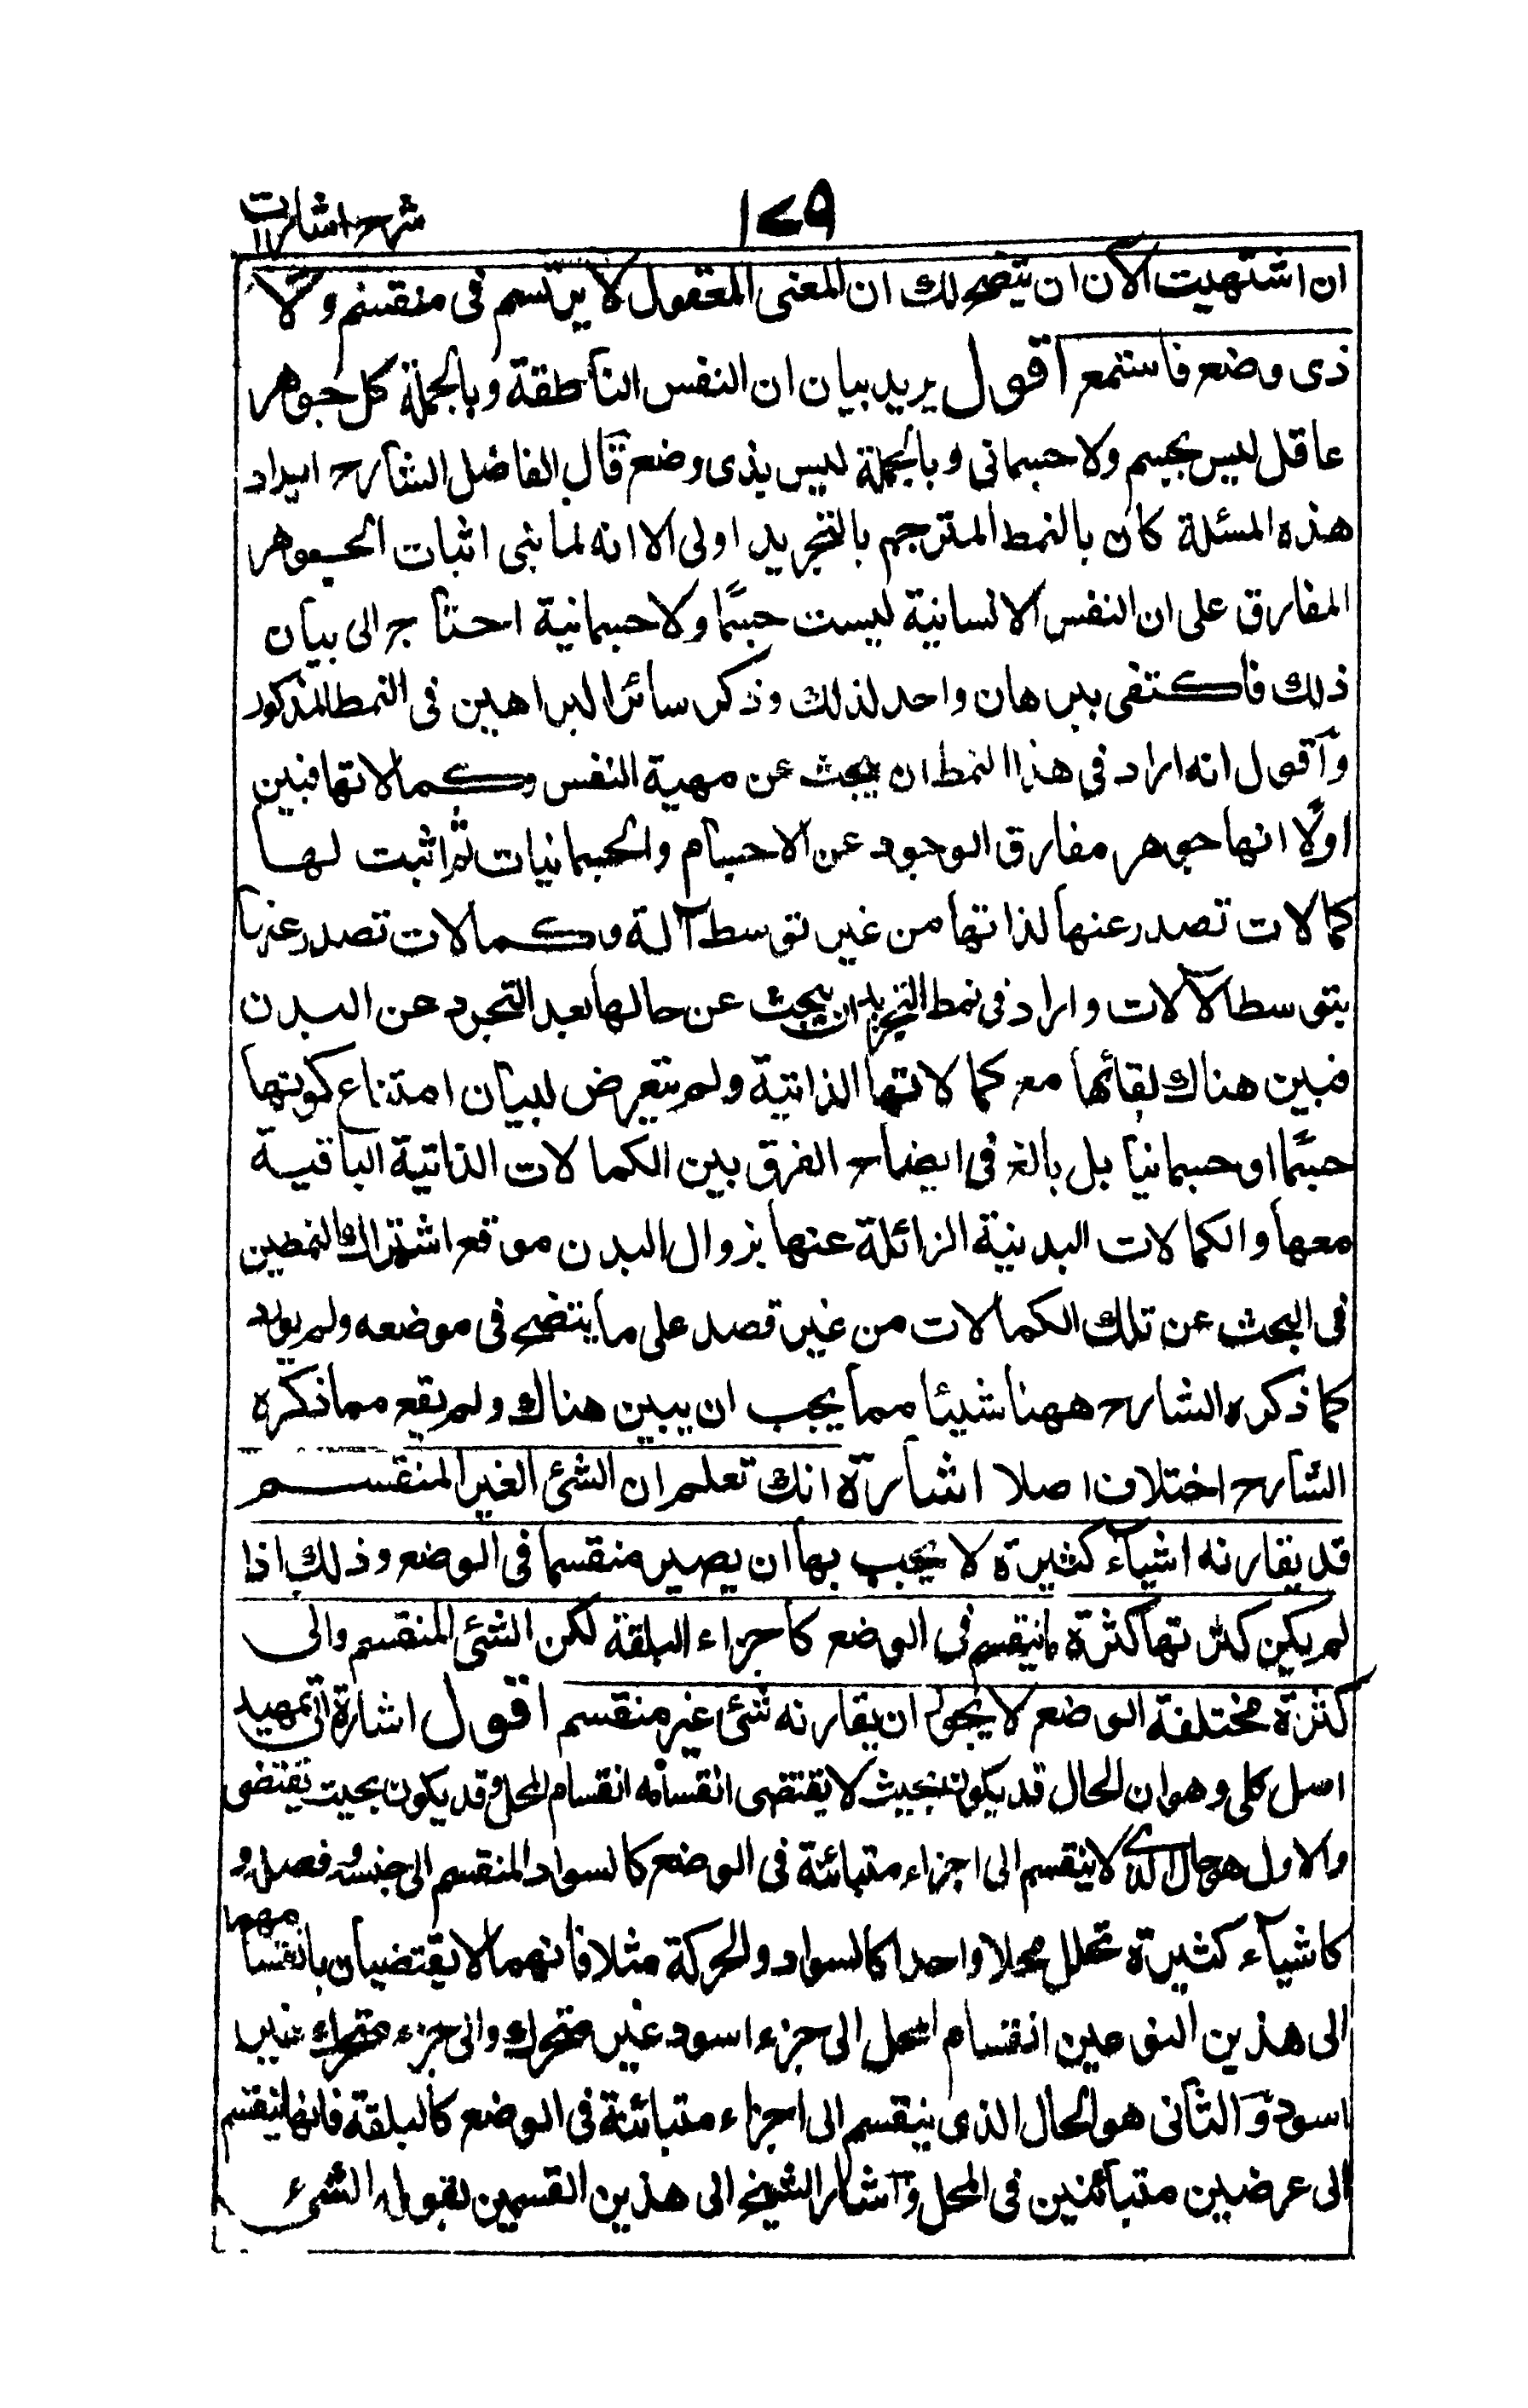 شرح اشارات
١٧٩
ان اشتهيت الآن ان يتضح لك ان المعنى المعقول لا يرتسم فى منقسم ولا
ذى وضع فاستمع اقول يريد بيان ان النفس الناطقة وبالجملة كل جوهر
عاقل ليس بجسم ولا جسمانى وبالجملة ليس بذى وضع قال الفاضل الشارح ايراد
هذه المسئلة كان بالنمط المترجم بالتجريد اولى الا انه لما بنى اثبات الجوهر
المفارق على ان النفس الانسانية ليست جسما ولا جسمانية احتاج الى بيان
ذلك فاكتفى ببرهان واحد لذلك وذكر سائر البراهين فى النمط المذكور
واقول انه اراد فى هذا النمط ان يبحث عن مهية النفس وكمالاتها فبين
اولًا انها جوهر مفارق الوجود عن الاجسام والجسمانيات ثم اثبت لها
كمالات تصدر عنها لذاتها من غير توسط آلة وكمالات تصدر عنها
بتوسط الآلات واراد فى نمط التجريد ان يبحث عن حالها بعد التجرد عن البدن
فبين هناك بقائها مع كمالاتها الذاتية ولم يتعرض لبيان امتناع كونها
جسما او جسمانيا بل بالغ فى ايضاح الفرق بين الكمالات الذاتية الباقية
معها والكمالات البدنية الزائلة عنها بزوال البدن موقع اشتراك النمطين
فى البحث عن تلك الكمالات من غير قصد على ما يتضح فى موضعه ولم يورد
كما ذكره الشارح ههنا شيئا مما يجب ان يبين هناك ولم يقع مما ذكره
الشارح اختلاف اصلا اشارة انك تعلم ان الشئ الغير المنقسم
قد يقارنه اشياء كثيرة لا يجب بها ان يصير منقسما فى الوضع وذلك اذا
لم يكن كثرتها كثرة ما ينقسم فى الوضع كاجزاء البلقة لكن الشئ المنقسم والى
كثرة مختلفة الوضع لا يجوز ان يقارنه شئ غير منقسم اقول اشارة الى تمهيد
اصل كلى وهو ان الحال قد يكون بحيث لا يقتضى انقسامه انقسام المحل وقد يكون بحيث يقتضى
والاول هو حال الذى لا ينقسم الى اجزاء متبائنة فى الوضع كالسواد المنقسم الى جنسه وفصله و
كاشياء كثيرة تحل محلا واحدا كالسواد والحركة مثلا فانهما لا يقتضيان بانقسامهما
الى هذين النوعين انقسام المحل الى جزء اسود غير متحرك والى جزء متحرك غير
اسود والثانى هو الحال الذى ينقسم الى اجزاء متبائنة فى الوضع كالبلقة فانها ينقسم
الى عرضين متبائنين فى المحل واشار الشيخ الى هذين القسمين بقوله الشئ